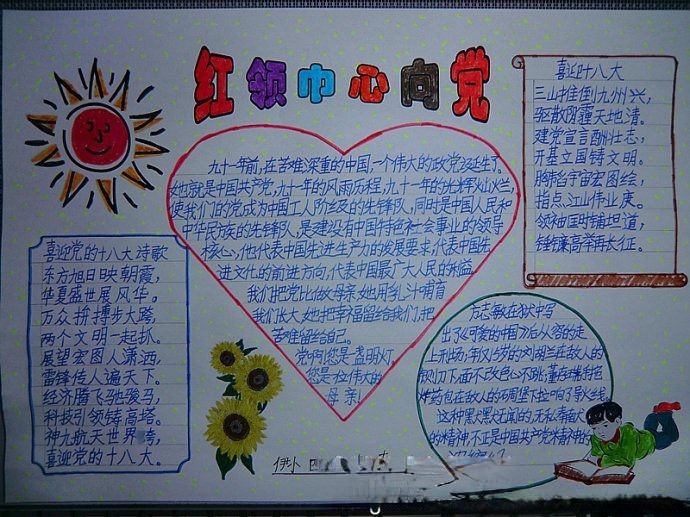 红领巾心向党
九十年前,在苦难深重的中国,一个伟大的政党诞生了。
她就是中国共产党,九十年的风雨历程,九十年的光辉灿烂,
使我们的党成为中国工人阶级的先锋队,同时是中国人民和
中华民族的先锋队,是建设有中国特色社会事业的领导
核心,他代表中国先进生产力的发展要求,代表中国先
进文化的前进方向,代表中国最广大人民的利益。
我们把党比做母亲,她用乳汁哺育
我们长大,她把幸福留给我们,把
苦难留给自己。
党啊!您是一盏明灯,
您是一位伟大的
母亲!
喜迎十八大
三山推倒九州兴,
驱散阴霾天地清。
建党宣言酬壮志,
开基立国铸文明。
胸怀宇宙宏图绘,
指点江山伟业庚。
领袖匡时铺坦道,
锤镰高举再长征。
喜迎党的十八大诗歌
东方旭日映朝霞,
华夏盛世展风华。
万众拼搏步大路,
两个文明一起抓。
展望宏图人潇洒,
雷锋传人遍天下。
经济腾飞驰骏马,
科技引领铸高塔。
神九航天世界夸,
喜迎党的十八大。
方志敏在狱中写
出了《可爱的中国》后从容的走
上刑场;年仅15岁的刘胡兰在敌人的
铡刀下,面不改色心不跳;董存瑞持包
炸药包在敌人的碉堡下拉响了导火线,
这种默默无闻的,无私奉献
的精神不正是中国共产党精神的